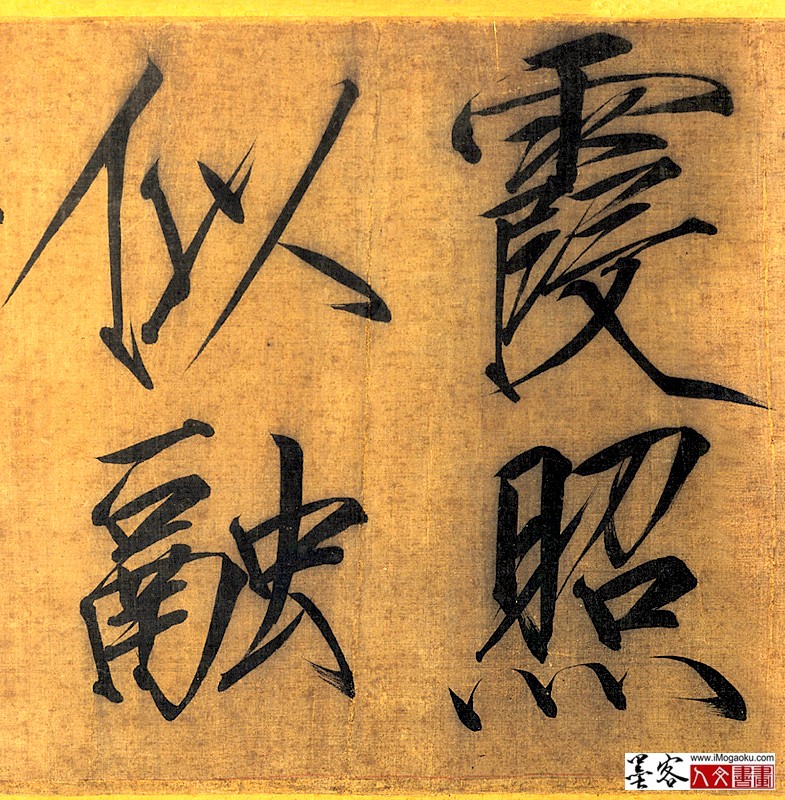 霞照
似融
墨客
www.iMogaoku.com
人文書畫